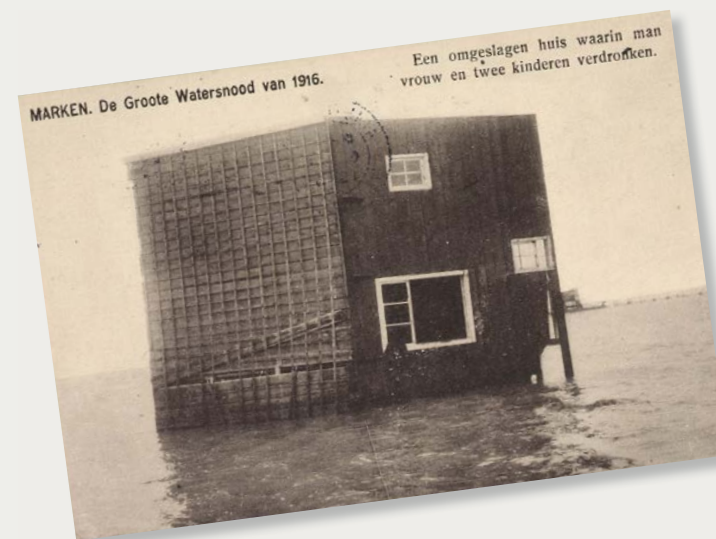 MARKEN. De Groote Watersnood van 1916.
Een omgeslagen huis waarin man
vrouw en twee kinderen verdronken.